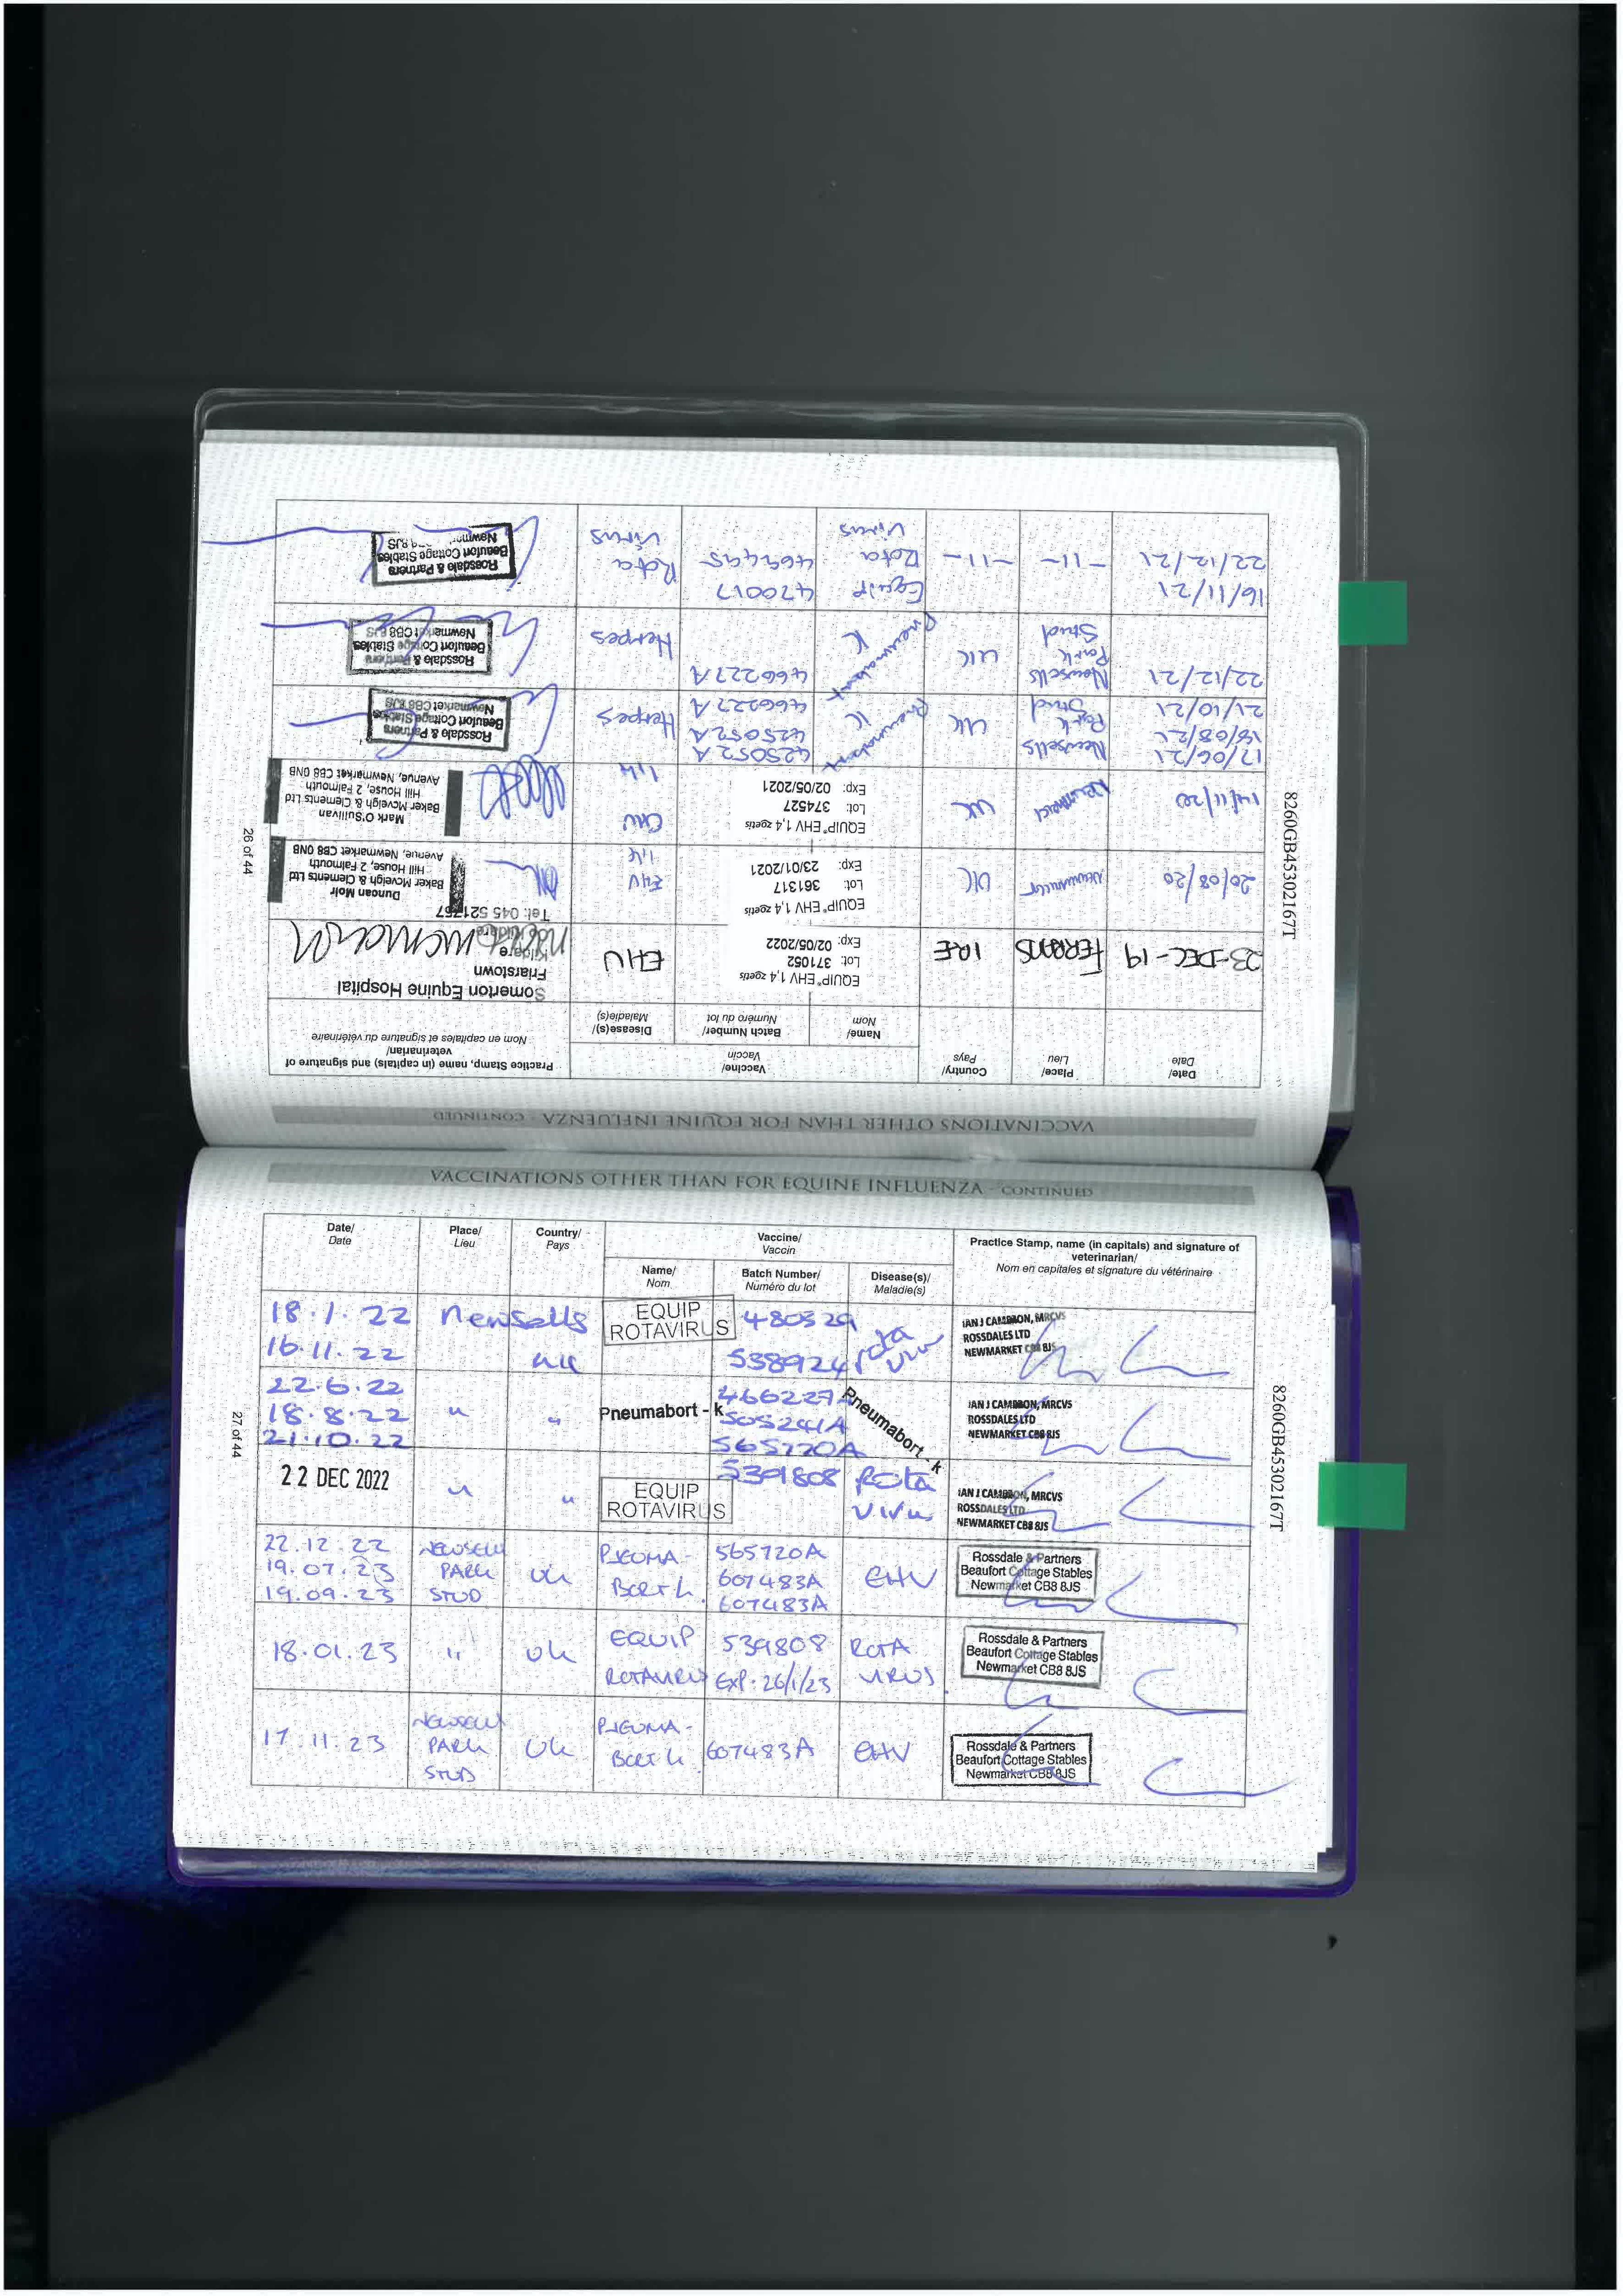 VACCINATIONS OTHER THAN FOR EQUINE INFLUENZA - CONTINUED
Date/ Date
Place/ Lieu
Country/ Pays
Vaccine/ Vaccin
Name/ Nom
Batch Number/ Numéro du lot
Disease(s)/ Maladie(s)
Practice Stamp, name (in capitals) and signature of veterinarian/
Nom en capitales et signature du vétérinaire
23-DEC-19 FERRANS IRE
EQUIP® EHV 1,4 zgetis
Lot: 371052
Exp: 02/05/2022
EHV
Somerton Equine Hospital
Friarstown
Kildare
Co Kildare
Tel: 045 521767
20/08/20 Newmarket UK
EQUIP® EHV 1,4 zgetis
Lot: 361317
Exp: 23/01/2021
EHV
1,4
Duncan Moir
Baker Mcveigh & Clements Ltd
Hill House, 2 Falmouth
Avenue, Newmarket CB8 0NB
14/11/20 Newmarket UK
EQUIP® EHV 1,4 zgetis
Lot: 374527
Exp: 02/05/2021
EHV
1,4
Mark O'Sullivan
Baker Mcveigh & Clements Ltd
Hill House, 2 Falmouth
Avenue, Newmarket CB8 0NB
17/06/21
18/08/21
21/10/21
Newsells
Park
Stud
UK
Pneumabort
K
425052A
425052A
466227A
Herpes
Rossdale & Partners
Beaufort Cottage Stables
Newmarket CB8 8JS
22/12/21
Newsells
Park
Stud
UK
Pneumabort
K
466227A
Herpes
Rossdale & Partners
Beaufort Cottage Stables
Newmarket CB8 8JS
16/11/21
22/12/21
-11- -11-
Equip
Rota
Virus
470017
469495
Rota
Virus
Rossdale & Partners
Beaufort Cottage Stables
8260GB45302167T
26 of 44
VACCINATIONS OTHER THAN FOR EQUINE INFLUENZA - CONTINUED
Date/ Date
Place/ Lieu
Country/ Pays
Vaccine/ Vaccin
Name/ Nom
Batch Number/ Numéro du lot
Disease(s)/ Maladie(s)
Practice Stamp, name (in capitals) and signature of veterinarian/
Nom en capitales et signature du vétérinaire
18.1.22
16.11.22
Newsells
UK
EQUIP
ROTAVIRUS
480329
538924
rota
virus
IAN J CAMERON, MRCVS
ROSSDALES LTD
NEWMARKET CB8 8JS
22.6.22
18.8.22
21.10.22
" "
Pneumabort - k
466227A
505241A
565720A
Pneumabort - k
IAN J CAMERON, MRCVS
ROSSDALES LTD
NEWMARKET CB8 8JS
22 DEC 2022
" "
EQUIP
ROTAVIRUS
5391808
Rota
virus
IAN J CAMERON, MRCVS
ROSSDALES LTD
NEWMARKET CB8 8JS
22.12.22
19.07.23
19.09.23
NEWSELLS
PARK
STUD
UK
PNEUMA-
BORT K
565720A
607483A
607483A
EHV
Rossdale & Partners
Beaufort Cottage Stables
Newmarket CB8 8JS
18.01.23 " UK
EQUIP
ROTAVIRUS
539808
EXP: 26/1/23
ROTA
VIRUS
Rossdale & Partners
Beaufort Cottage Stables
Newmarket CB8 8JS
17.11.23
NEWSELLS
PARK
STUD
UK
PNEUMA-
BORT K
607483A
EHV
Rossdale & Partners
Beaufort Cottage Stables
Newmarket CB8 8JS
8260GB45302167T
27 of 44